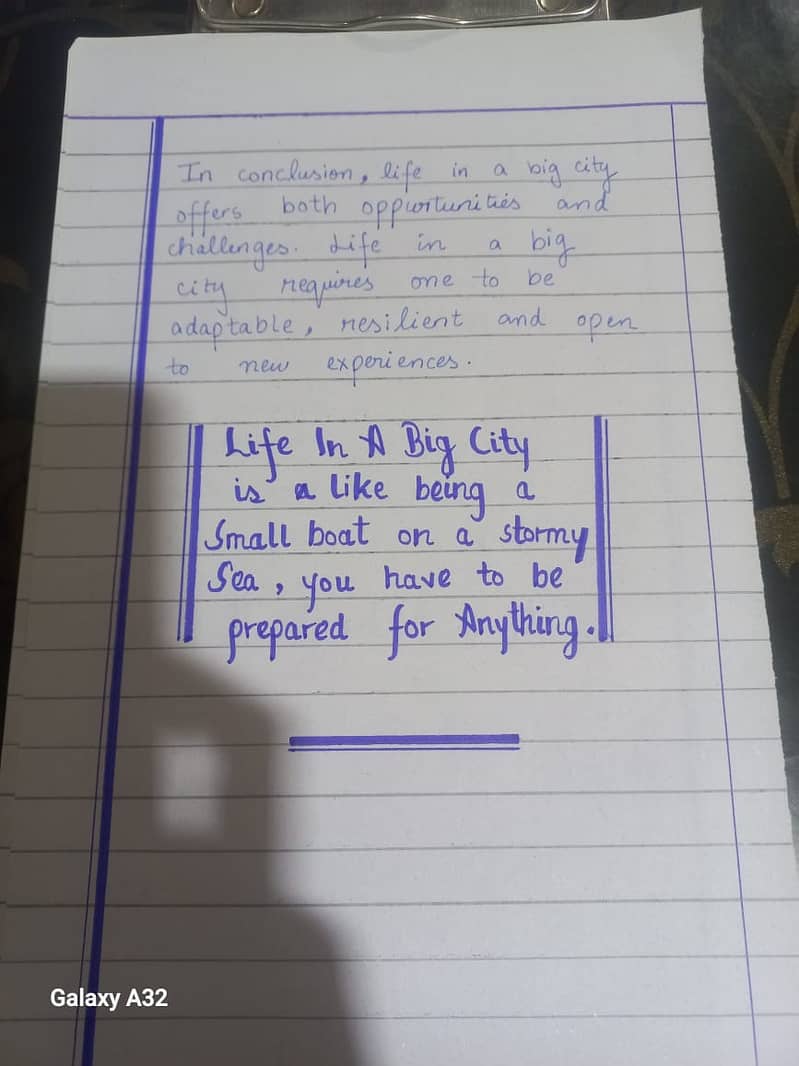 In conclusion, life in a big city
offers both oppurtunities and
challenges. Life in a big
city requires one to be
adaptable, resilient and open
to new experiences.
Life In A Big City
is a like being a
Small boat on a stormy
Sea, you have to be
prepared for Anything.
Galaxy A32